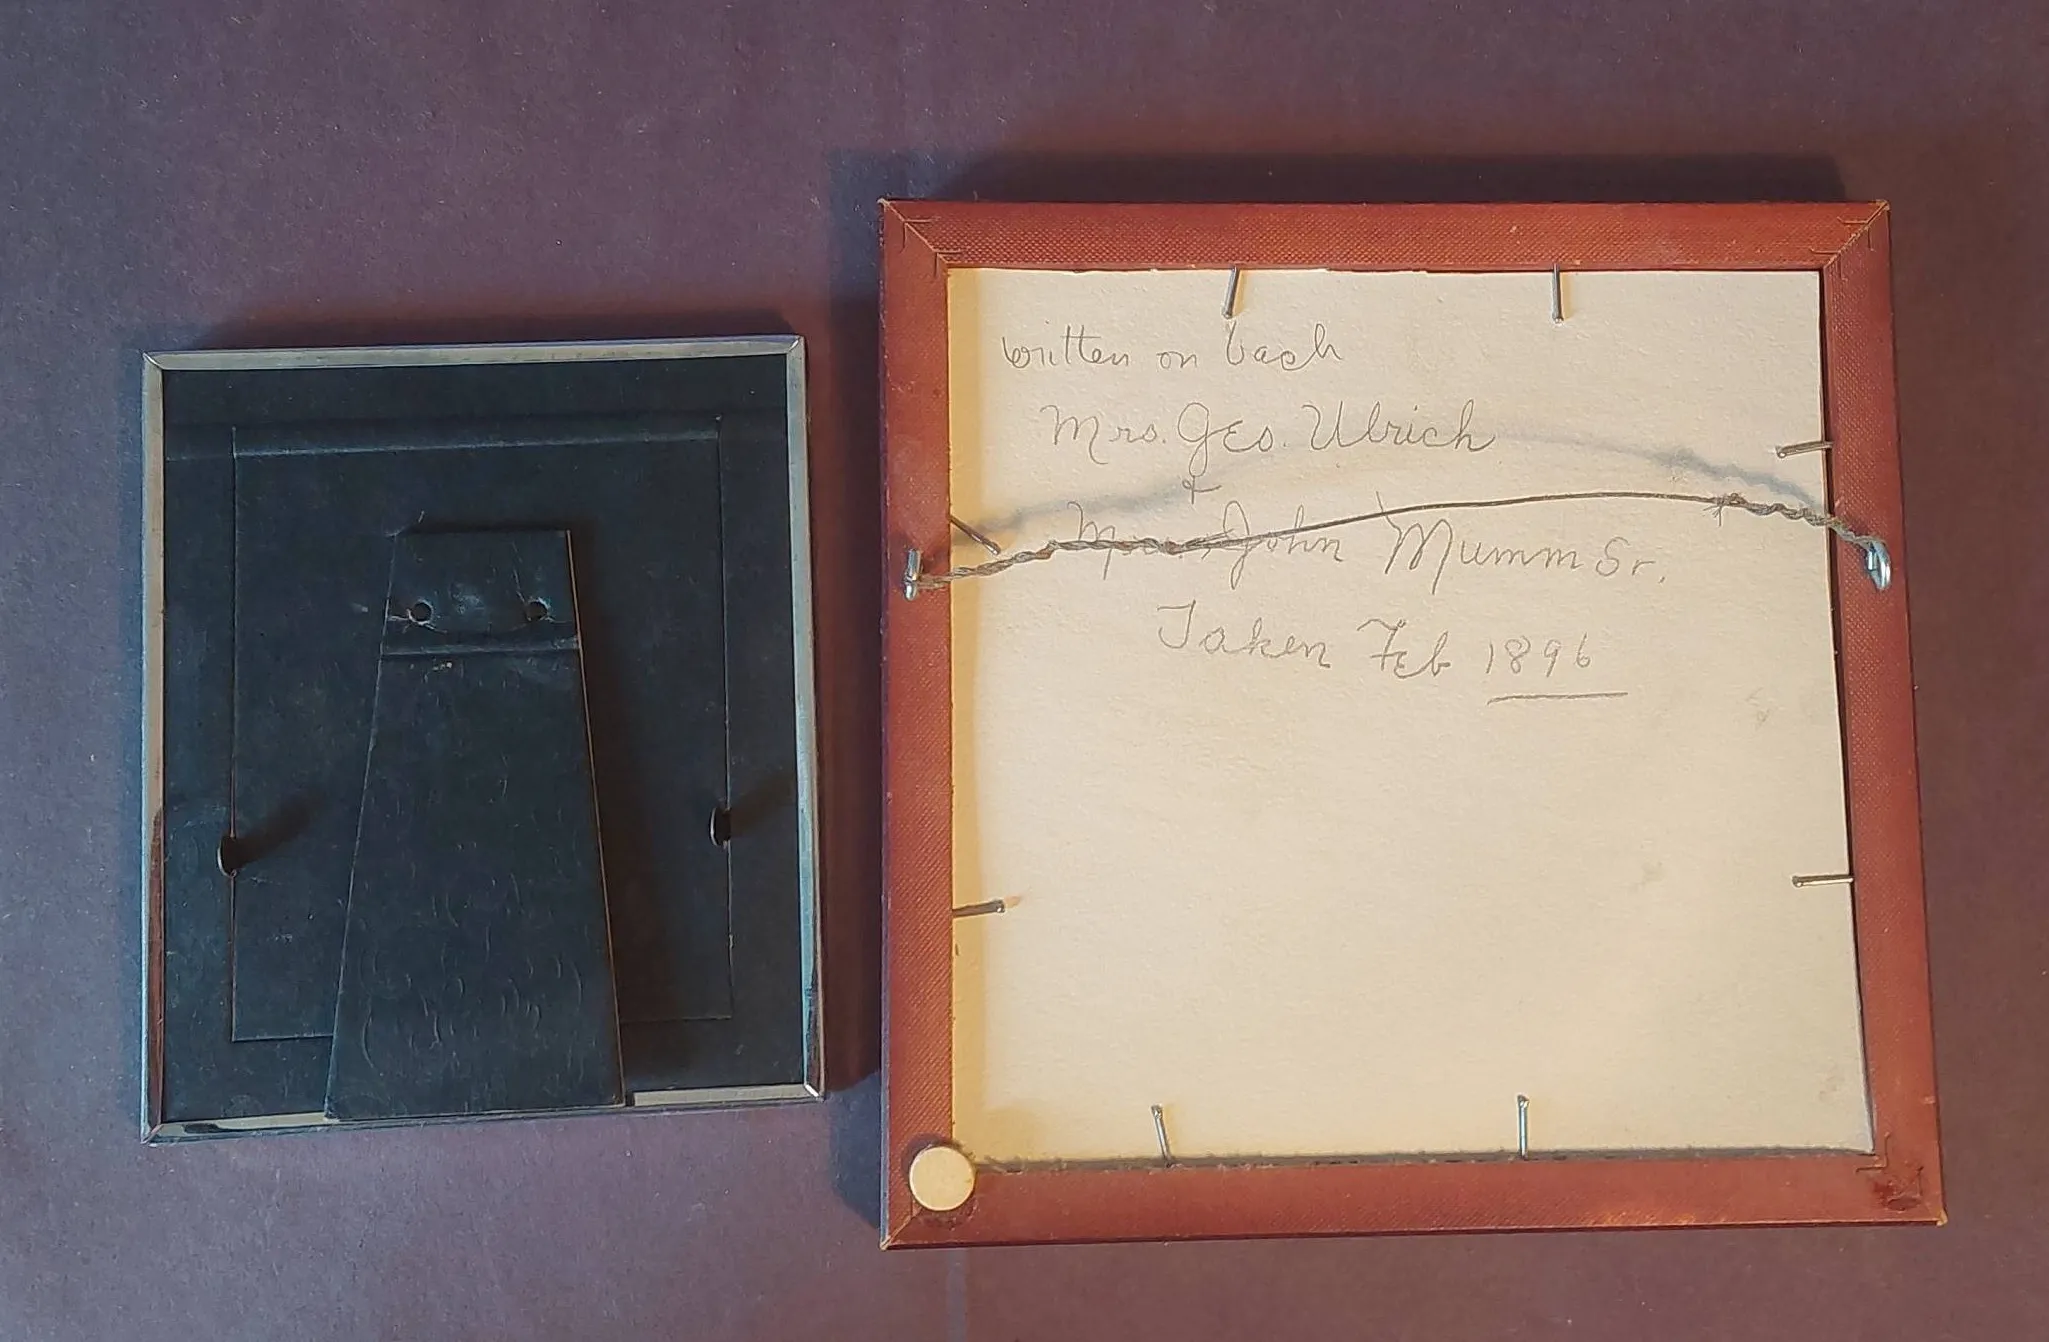 written on back
Mrs. Geo. Ulrich
&
Mrs. John Mumm Sr.
Taken Feb 1896